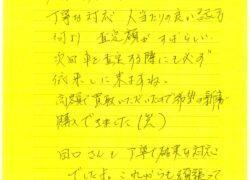 丁寧な対応 人当たりの良い話し方
何より 査定額がすばらしい
次回 車を査定する際にも必ず
依頼しに来ますね。
高額で買取いただいたので希望の新車
購入できました(笑)
田口さんも丁寧で確実な対応
でした。これからも頑張って